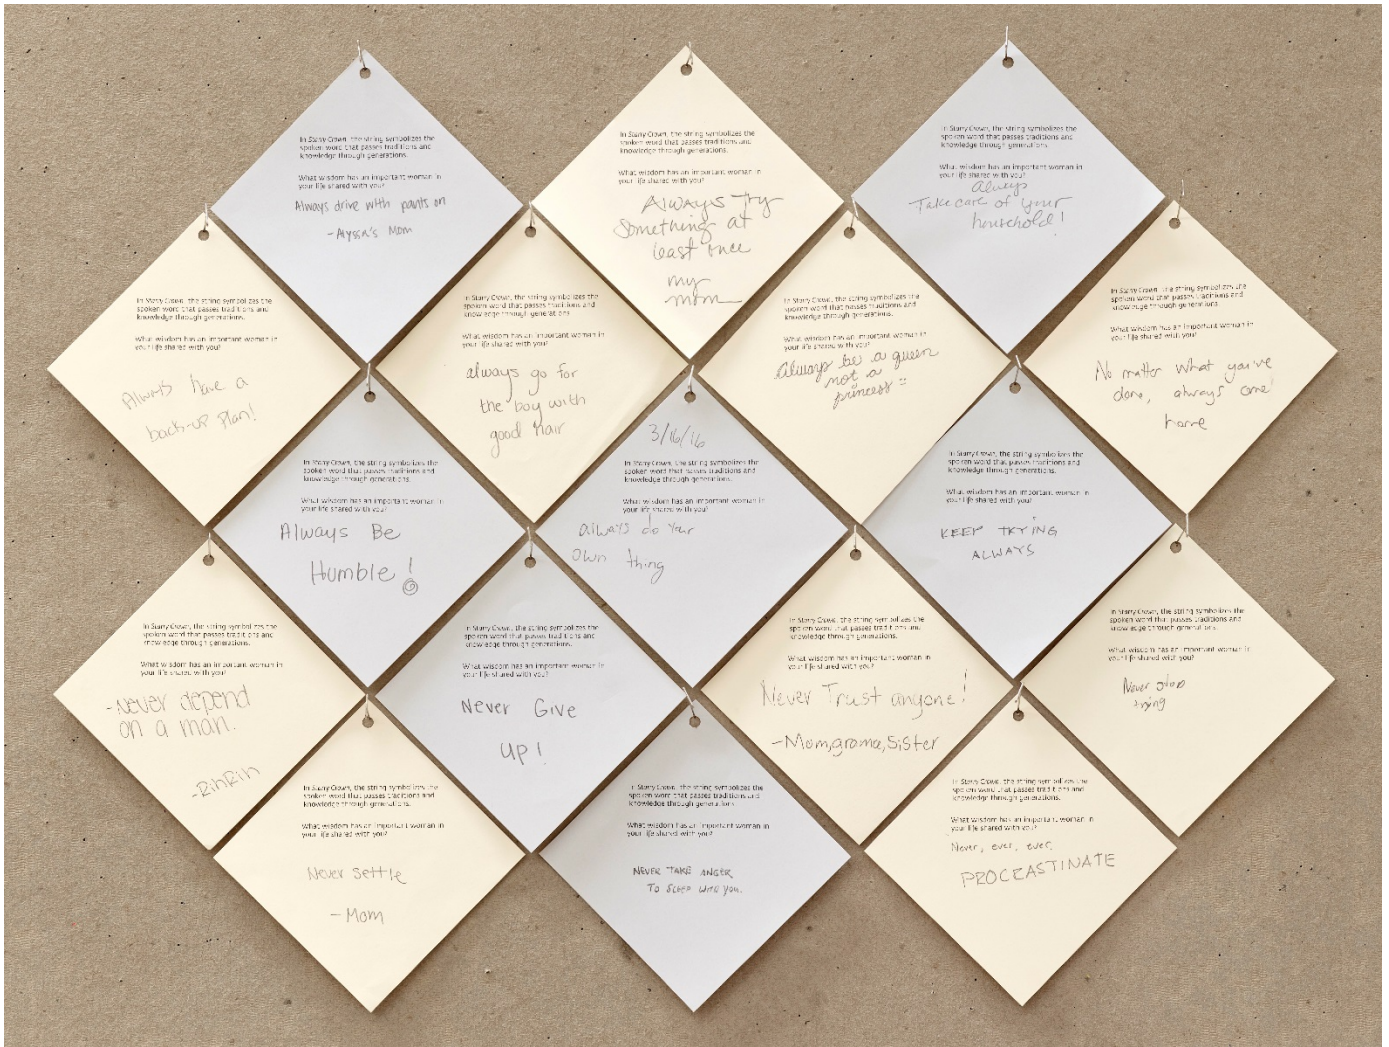 In Starry Crown, the string symbolizes the
spoken word that passes traditions and
knowledge through generations.
What wisdom has an important woman in
your life shared with you?
Always drive with pants on
-Alyssa's Mom
In Starry Crown, the string symbolizes the
spoken word that passes traditions and
knowledge through generations.
What wisdom has an important woman in
your life shared with you?
Always Try
Something at
least once
my
mom
In Starry Crown, the string symbolizes the
spoken word that passes traditions and
knowledge through generations.
What wisdom has an important woman in
your life shared with you?
Always
Take care of your
household!
In Starry Crown, the string symbolizes the
spoken word that passes traditions and
knowledge through generations.
What wisdom has an important woman in
your life shared with you?
Always have a
back-up plan!
In Starry Crown, the string symbolizes the
spoken word that passes traditions and
knowledge through generations.
What wisdom has an important woman in
your life shared with you?
always go for
the boy with
good hair
In Starry Crown, the string symbolizes the
spoken word that passes traditions and
knowledge through generations.
What wisdom has an important woman in
your life shared with you?
Always be a queen
not a
princess :)
In Starry Crown, the string symbolizes the
spoken word that passes traditions and
knowledge through generations.
What wisdom has an important woman in
your life shared with you?
No matter what you've
done, always come
home
In Starry Crown, the string symbolizes the
spoken word that passes traditions and
knowledge through generations.
What wisdom has an important woman in
your life shared with you?
Always Be
Humble!
3/16/16
In Starry Crown, the string symbolizes the
spoken word that passes traditions and
knowledge through generations.
What wisdom has an important woman in
your life shared with you?
always do your
own thing
In Starry Crown, the string symbolizes the
spoken word that passes traditions and
knowledge through generations.
What wisdom has an important woman in
your life shared with you?
KEEP TRYING
ALWAYS
In Starry Crown, the string symbolizes the
spoken word that passes traditions and
knowledge through generations.
What wisdom has an important woman in
your life shared with you?
-Never depend
on a man.
-RinRin
In Starry Crown, the string symbolizes the
spoken word that passes traditions and
knowledge through generations.
What wisdom has an important woman in
your life shared with you?
Never Give
up!
In Starry Crown, the string symbolizes the
spoken word that passes traditions and
knowledge through generations.
What wisdom has an important woman in
your life shared with you?
Never Trust anyone!
-Mom,grama,Sister
In Starry Crown, the string symbolizes the
spoken word that passes traditions and
knowledge through generations.
What wisdom has an important woman in
your life shared with you?
Never stop
trying
In Starry Crown, the string symbolizes the
spoken word that passes traditions and
knowledge through generations.
What wisdom has an important woman in
your life shared with you?
Never settle
-Mom
In Starry Crown, the string symbolizes the
spoken word that passes traditions and
knowledge through generations.
What wisdom has an important woman in
your life shared with you?
NEVER TAKE ANGER
TO SLEEP WITH YOU.
In Starry Crown, the string symbolizes the
spoken word that passes traditions and
knowledge through generations.
What wisdom has an important woman in
your life shared with you?
Never, ever, ever,
PROCRASTINATE